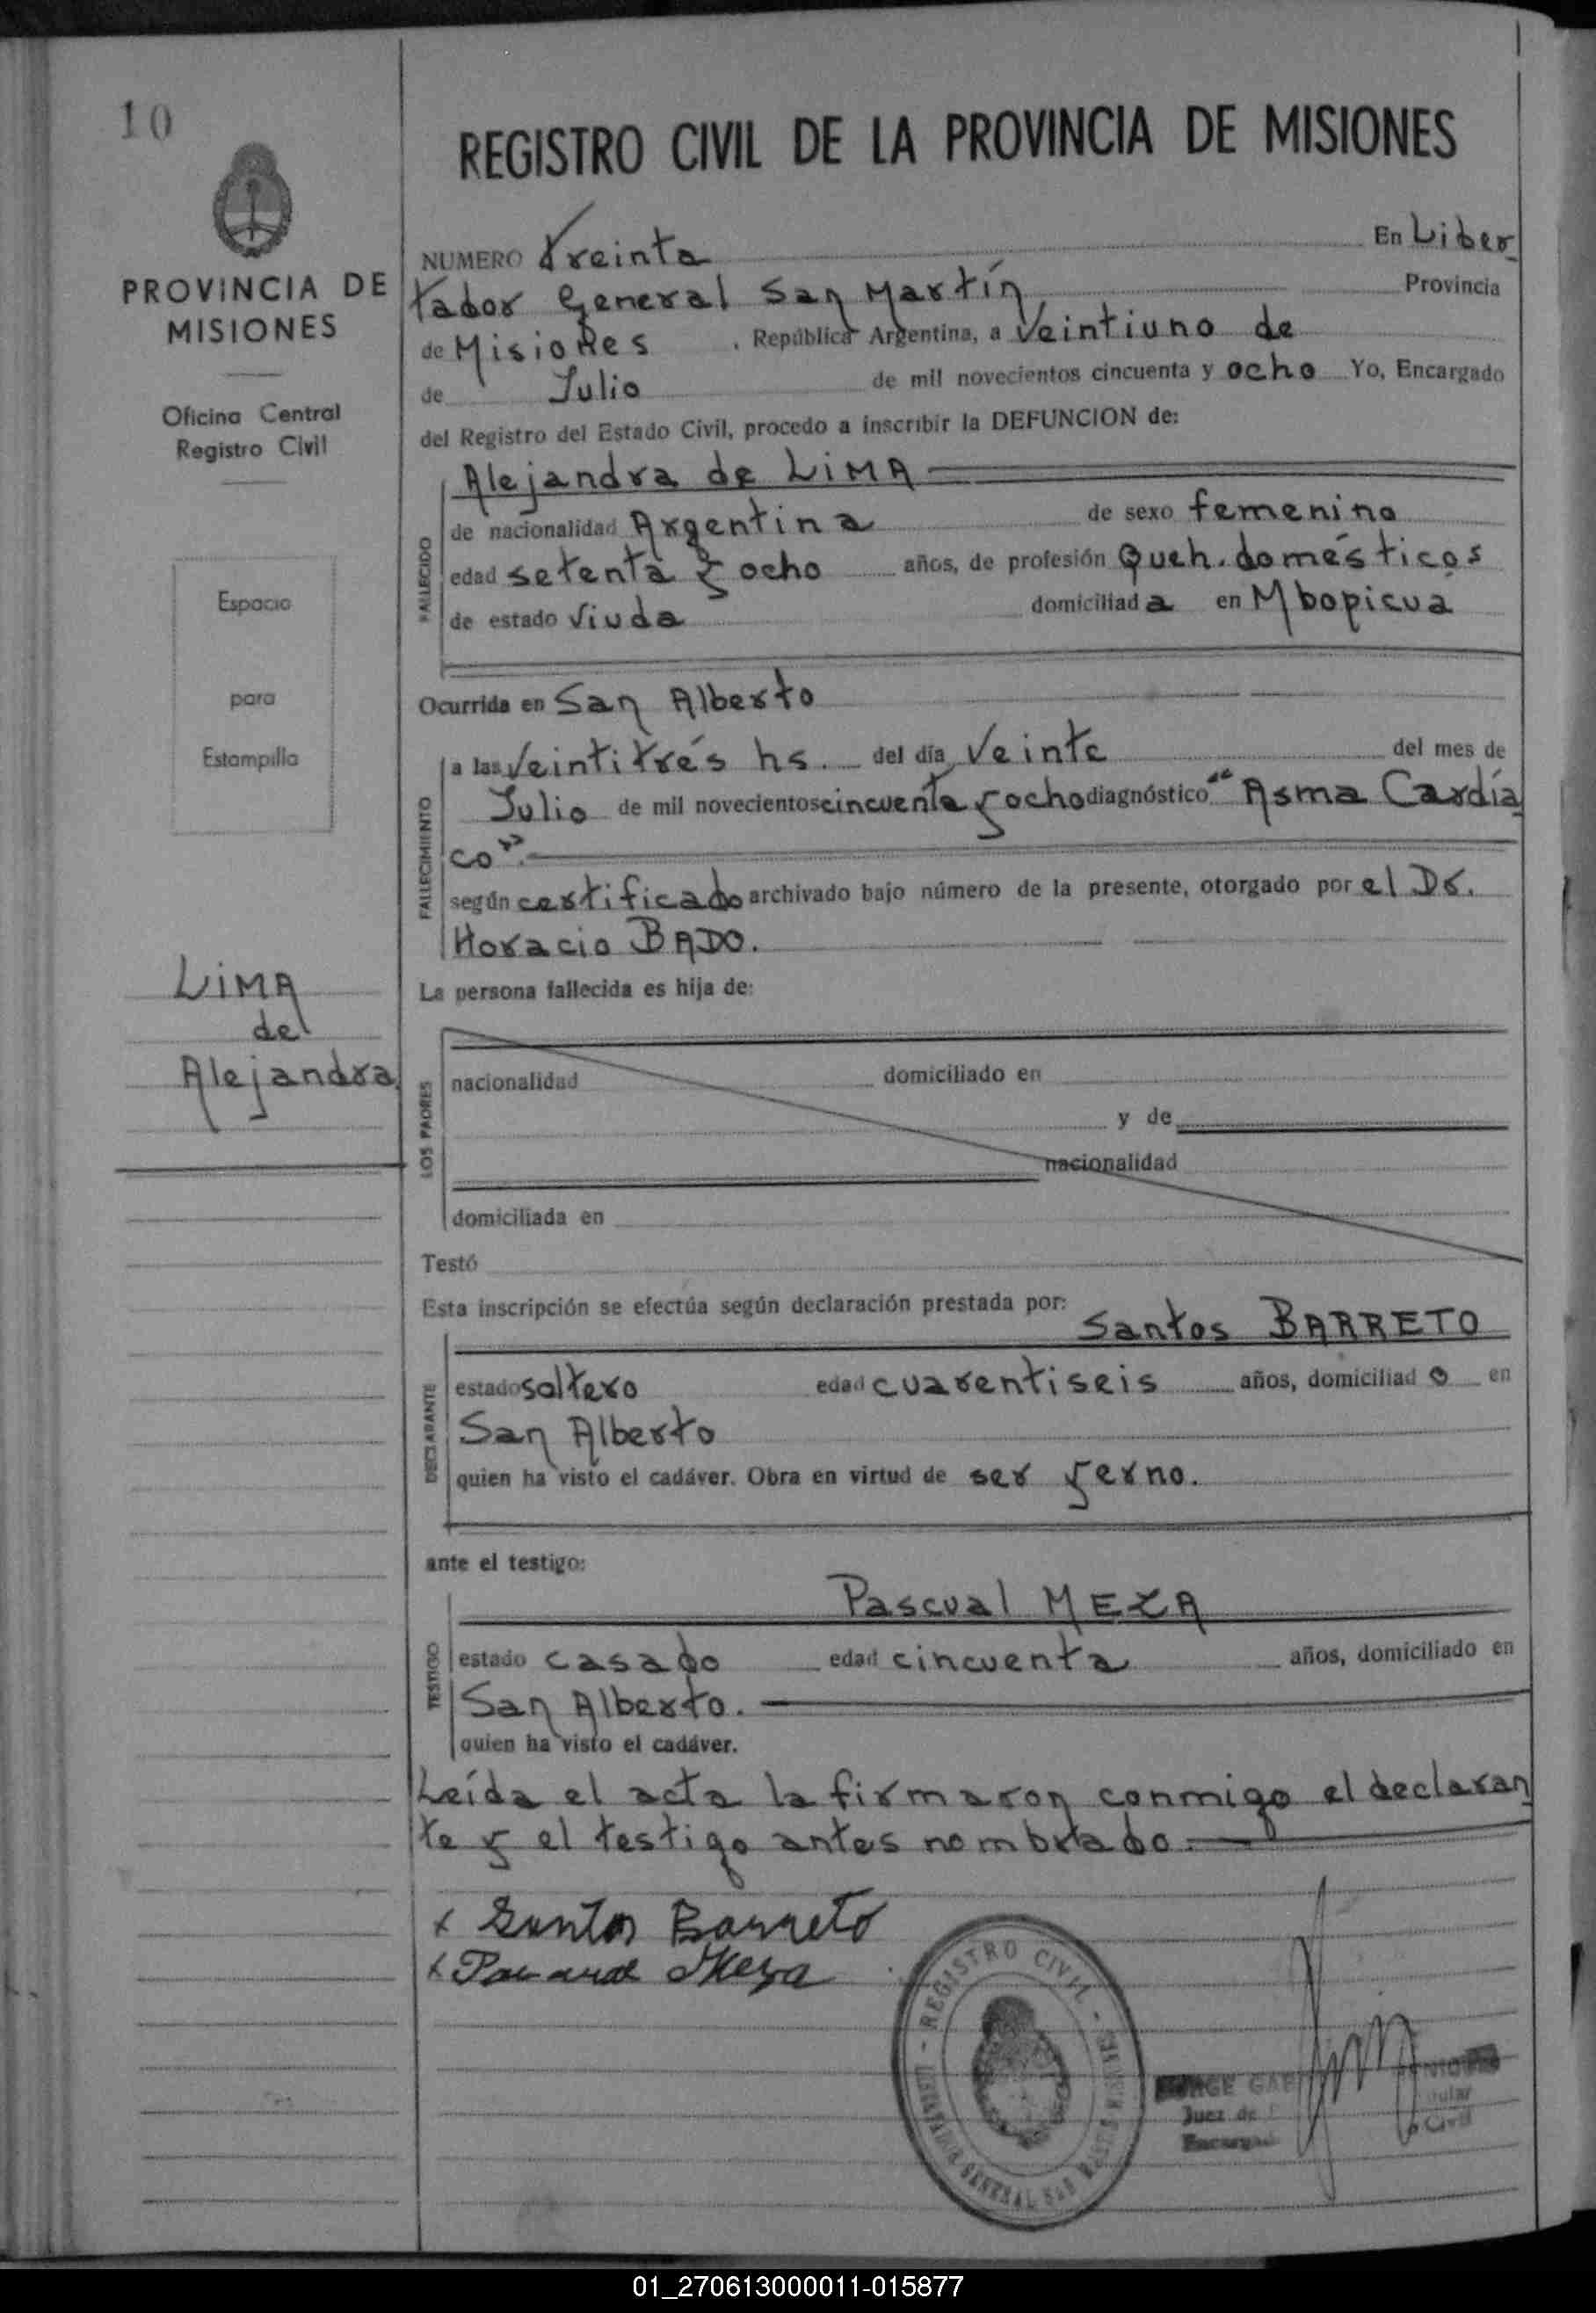 10
PROVINCIA DE
MISIONES
Oficina Central
Registro Civil
Espacio
para
Estampilla
LiMA
de
Alejandra
REGISTRO CIVIL DE LA PROVINCIA DE MISIONES
NUMERO Treinta En Liber_
tador General San Martín Provincia
de Misiones , República Argentina, a Veintiuno de
de Julio de mil novecientos cincuenta y ocho Yo, Encargado
del Registro del Estado Civil, procedo a inscribir la DEFUNCION de:
Alejandra de LiMA
FALLECIDO
de nacionalidad Argentina de sexo femenino
edad setenta y ocho años, de profesión Queh. domésticos
de estado Viuda domiciliada en Mbopicua
Ocurrida en San Alberto
FALLECIMIENTO
a las Veintitrés hs. del día Veinte del mes de
Julio de mil novecientos cincuenta y ocho diagnóstico "Asma Cardía_
co".
según certificado archivado bajo número de la presente, otorgado por el Dr.
Horacio BADO.
La persona fallecida es hija de:
LOS PADRES
nacionalidad domiciliado en
y de
nacionalidad
domiciliada en
Testó
Esta inscripción se efectúa según declaración prestada por:
Santos BARRETO
DECLARANTE
estado soltero edad cuarentiseis años, domiciliado en
San Alberto
quien ha visto el cadáver. Obra en virtud de ser yerno.
ante el testigo:
Pascual MEZA
TESTIGO
estado casado edad cincuenta años, domiciliado en
San Alberto.
quien ha visto el cadáver.
Leída el acta la firmaron conmigo el declaran_
te y el testigo antes nombrado.
x Santos Barreto
x Pascual Meza
- REGISTRO CIVIL -
LIBERTADOR GENERAL SAN MARTIN MISIONES
Juez de
Civil
01_270613000011-015877